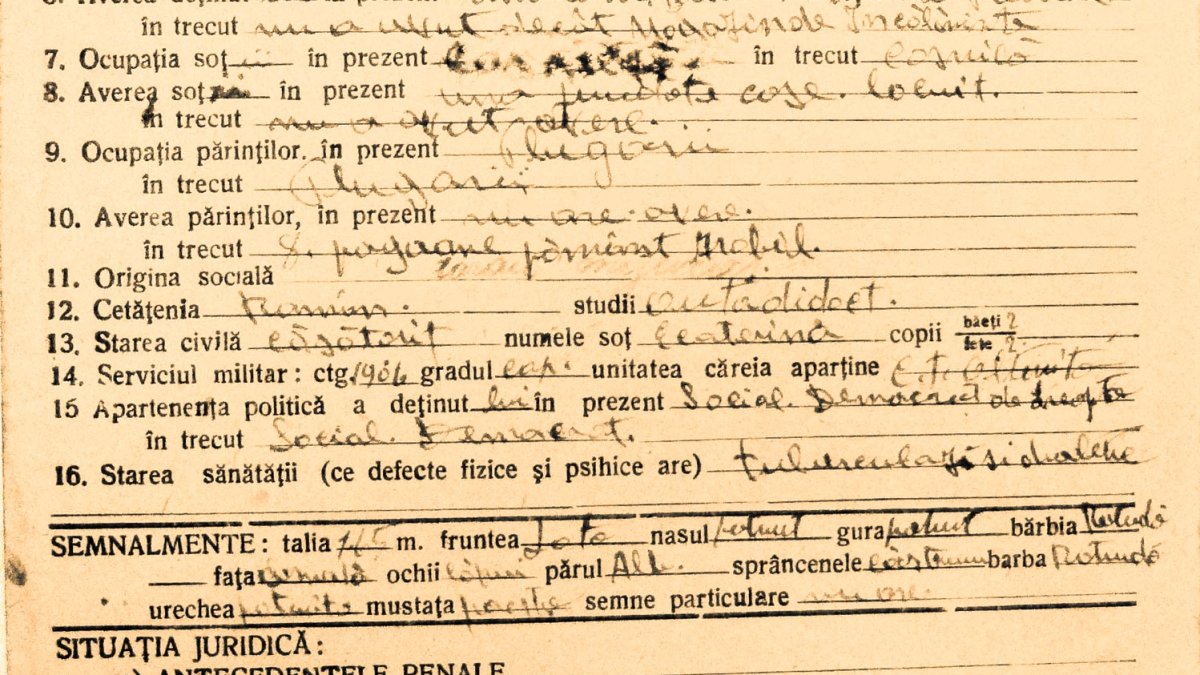 în trecut nu a avut decât Magazin de Încălăminte
7. Ocupația soției în prezent Casnică în trecut casnică
8. Averea soției în prezent una jumătate case locuit.
în trecut nu a avut avere.
9. Ocupația părinților, în prezent Plugarii
în trecut Plugarii
10. Averea părinților, în prezent nu are avere.
în trecut 8. pogoane pămînt Arabil.
11. Origina socială
12. Cetățenia Român. studii autadidact.
13. Starea civilă căsătorit numele soț Ecaterina copii băeți 2 fete 2
14. Serviciul militar: ctg. 1906 gradul cap. unitatea căreia aparține
15 Apartenența politică a deținut lui în prezent Social. Democrat de dreapta
în trecut Social. Democrat.
16. Starea sănătății (ce defecte fizice și psihice are)
SEMNALMENTE: talia m. fruntea Lată nasul potrivit gura potrivit bărbia Rotundă
fața ochii căprui părul Alb. sprâncenele barba Rotundă
urechea potrivită mustața semne particulare nu are.
SITUAȚIA JURIDICĂ:
ANTECEDENTELE PENALE